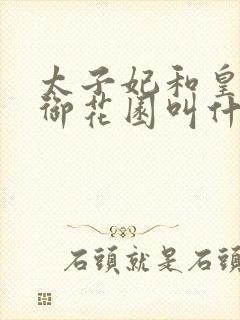 太子妃和皇
御花园叫什
石頭就是石頭